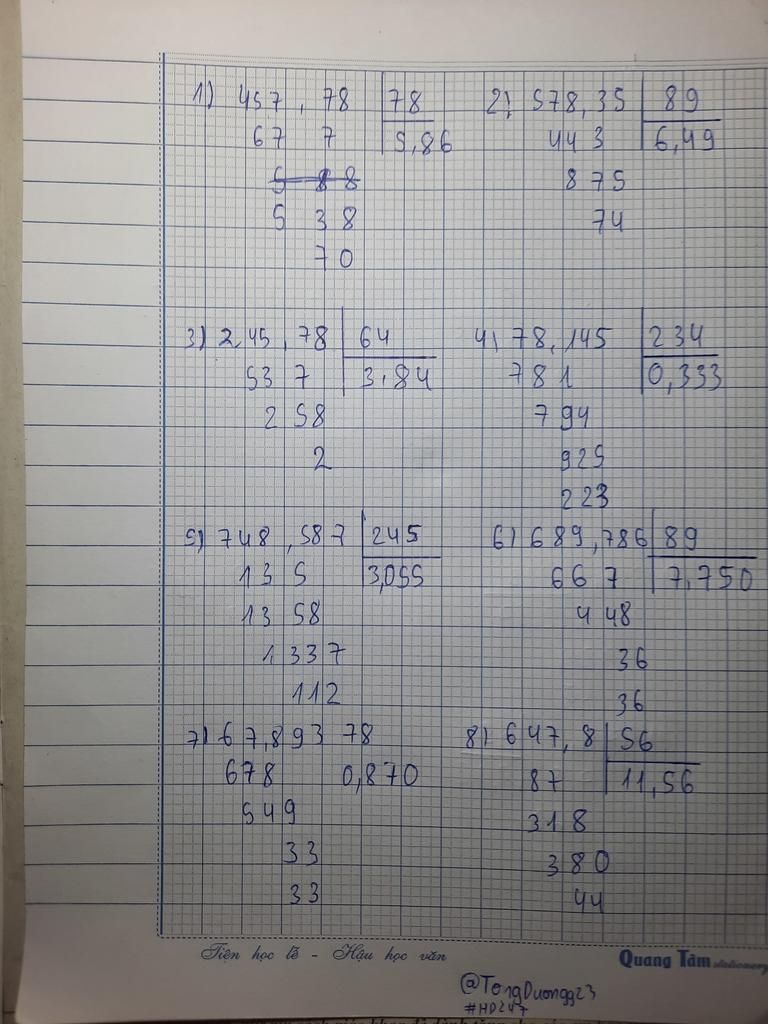 1) 457,78 78
67 7 5,86
5 88
5 38
70
2) 578,35 89
443 6,49
875
74
3) 2,45,78 64
53 7 3,84
2 58
2
4) 78,145 234
781 0,333
794
925
223
5) 748,587 245
13 5 3,055
13 58
1 337
112
6) 689,786 89
66 7 7,750
4 48
36
36
7) 67,893 78
678 0,870
549
33
33
8) 647,8 56
87 11,56
318
380
44
Tiên học lễ - Hậu học văn
Quang Tâm stationery
@TongDuongg23
#HD247